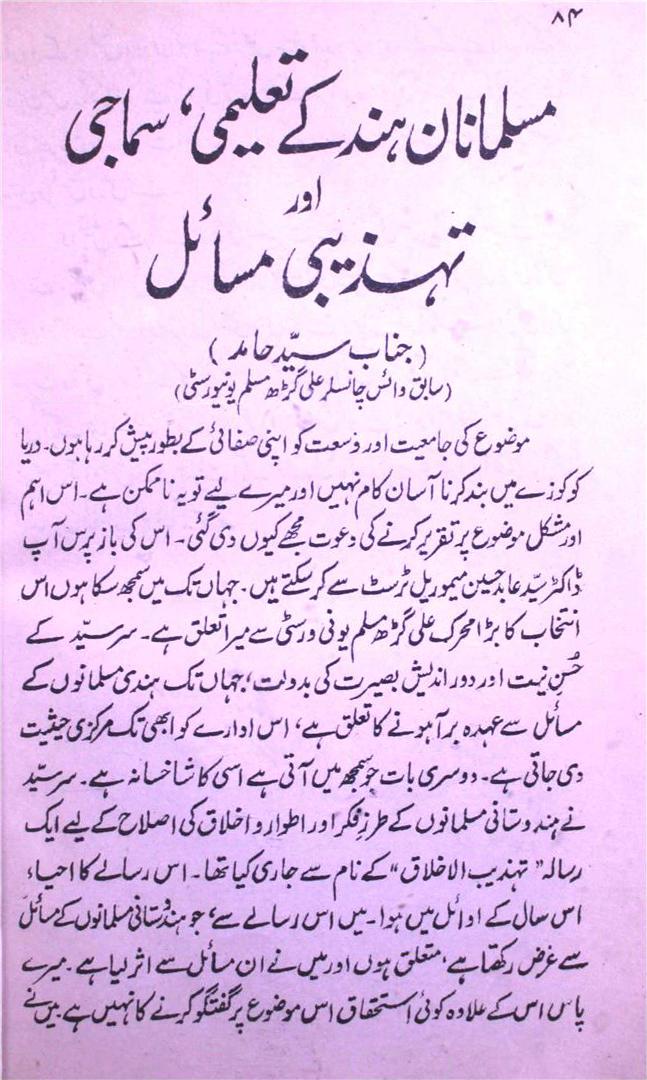 ۸۴
مسلمانان ہند کے تعلیمی، سماجی
اور
تہذیبی مسائل
(جناب سیّد حامد)
(سابق وائس چانسلر علی گڑھ مسلم یونیورسٹی)
موضوع کی جامعیت اور وسعت کو اپنی صفائی کے بطور پیش کر رہا ہوں۔ دریا
کو کوزے میں بند کرنا آسان کام نہیں اور میرے لیے تو یہ ناممکن ہے۔ اس اہم
اور مشکل موضوع پر تقریر کرنے کی دعوت مجھے کیوں دی گئی۔ اس کی باز پرس آپ
ڈاکٹر سیّد عابد حسین میموریل ٹرسٹ سے کر سکتے ہیں۔ جہاں تک میں سمجھ سکا ہوں اس
انتخاب کا بڑا محرک علی گڑھ مسلم یونی ورسٹی سے میرا تعلق ہے۔ سرسیّد کے
حُسنِ نیت اور دور اندیش بصیرت کی بدولت، جہاں تک ہندی مسلمانوں کے
مسائل سے عہدہ برآ ہونے کا تعلق ہے، اس ادارے کو ابھی تک مرکزی حیثیت
دی جاتی ہے۔ دوسری بات جو سمجھ میں آتی ہے اسی کا شاخسانہ ہے۔ سرسیّد
نے ہندوستانی مسلمانوں کے طرزِ فکر اور اطوار و اخلاق کی اصلاح کے لیے ایک
رسالہ ”تہذیب الاخلاق“ کے نام سے جاری کیا تھا۔ اس رسالے کا احیاء
اس سال کے اوائل میں ہوا۔ میں اس رسالے سے، جو ہندوستانی مسلمانوں کے مسائل
سے غرض رکھتا ہے، متعلق ہوں اور میں نے ان مسائل سے اثر لیا ہے۔ میرے
پاس اس کے علاوہ کوئی استحقاق اس موضوع پر گفتگو کرنے کا نہیں ہے۔ میں نے